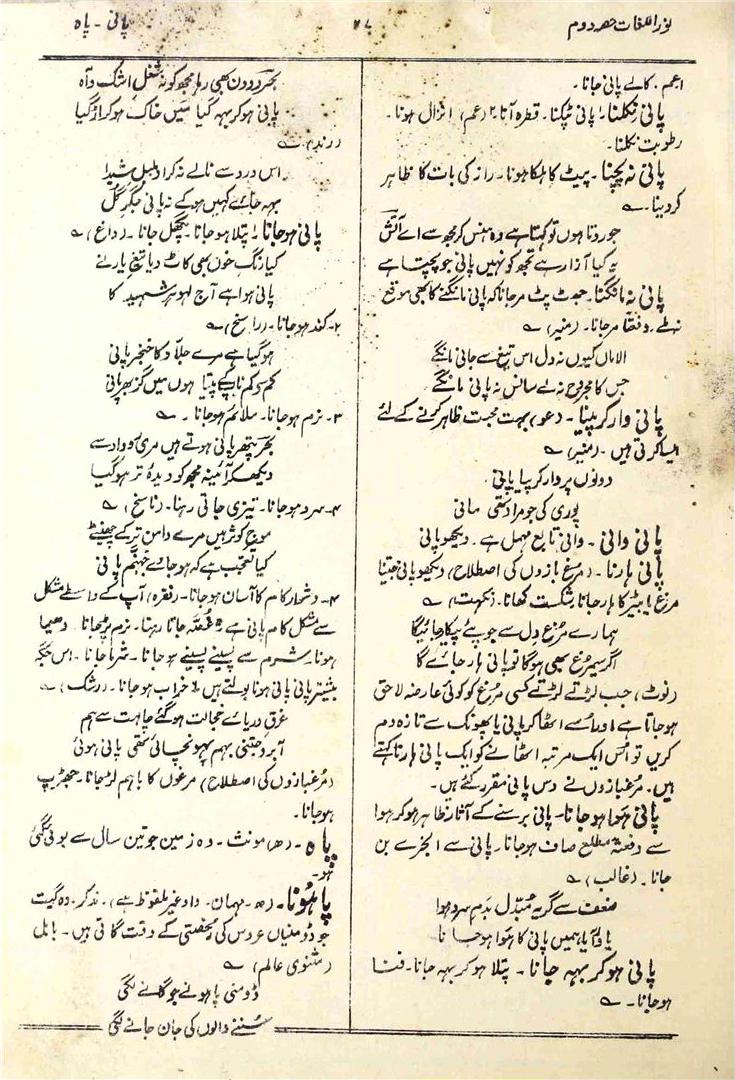 نور اللغات حصہ دوم
۴۷
پانی - پاہ
(عم) کالے پانی جانا۔
پانی نکلنا۔ ۱ پانی ٹپکنا۔ قطرہ آنا۔ ۲ (عم) انزال ہونا۔
رطوبت نکلنا۔
پانی نہ پچنا۔ پیٹ کا ہلکا ہونا۔ راز کی بات کا ظاہر
کر دینا۔ ؎
جو روتا ہوں تو کہتا ہے وہ ہنس کر مجھ سے اے آتش
یہ کیا آزار ہے تجھ کو نہیں پانی جو پچتا ہے
پانی نہ مانگنا۔ جھٹ پٹ مر جانا کہ پانی مانگنے کا بھی موقع
نہ ملے۔ دفعتاً مر جانا۔ (منیر) ؎
الاماں کیوں نہ دل اس تیغ سے جانی مانگے
جس کا مجروح نہ لے سانس نہ پانی مانگے
پانی وار کر پینا۔ (عو) بہت محبت ظاہر کرنے کے لئے
ایسا کرتی ہیں۔ (منیر) ؎
دونوں پر وار کر پیا پانی
پوری کی جو مراد تھی مانی
پانی وانی۔ وانی تابع مہمل ہے۔ دیکھو پانی
پانی ہارنا۔ (مرغ بازوں کی اصطلاح) دیکھو پانی جیتنا
مرغ یا بٹیر کا ہار جانا شکست کھانا۔ (نکہت) ؎
ہمارے مرغ دل سے جو پئے پیکار جائیگا
اگر سیمرغ بھی ہوگا تو پانی ہار جائے گا
(نوٹ) جب لڑتے لڑتے کسی مرغ کو کوئی عارضہ لاحق
ہو جاتا ہے اور اُسے اٹھا کر پانی یا پھونک سے تازہ دم
کریں تو اُس ایک مرتبہ اٹھانے کو ایک پانی ہارنا کہتے
ہیں۔ مرغبازوں نے دس پانی مقرر کئے ہیں۔
پانی ہوا ہو جانا۔ پانی برسنے کے آثار ظاہر ہو کر ہوا
سے دفعتہً مطلع صاف ہو جانا۔ پانی سے ابخرے بن
جانا۔ (غالب) ؎
ضعف سے گریہ مبدّل بدمِ سرد ہوا
باور آیا ہمیں پانی کا ہوا ہو جانا
پانی ہو کر بہہ جانا۔ پتلا ہو کر بہہ جانا۔ فنا
ہو جانا۔ ؎
بحر دو دن بھی رہا مجھ کو نہ شغلِ اشک و آہ
پانی ہو کر بہہ گیا میں خاک ہو کر اڑ گیا
(رند) ؎
اس درد سے نالے نہ کر او بلبلِ شیدا
بہہ جائے کہیں ہو کے نہ پانی جگرِ گل
پانی ہو جانا۔ ۱ پتلا ہو جانا۔ پگھل جانا۔ (داغ) ؎
کیا رنگ خون بھی کاٹ دیا تیغِ یار نے
پانی ہوا ہے آج لہو ہر شہید کا
۲۔ کند ہو جانا۔ (راسخ) ؎
ہو گیا ہے مرے جلّاد کا خنجر پانی
کم سے کم ناپیے پیتا ہوں میں گز بھر پانی
۳۔ نرم ہو جانا۔ ملائم ہو جانا۔ ؎
بحر پتھر پانی ہوتے ہیں مری روداد سے
دیکھ کر آئینہ مجھ کو دیدۂ تر ہو گیا
۴۔ سرد ہو جانا۔ تیزی جاتی رہنا۔ (ناسخ) ؎
موجِ کوثر ہیں مرے دامنِ تر کے چھینٹے
کیا تعجب ہے کہ ہو جائے جہنّم پانی
۴۔ دشوار کام کا آسان ہو جانا۔ (فقرہ) آپ کے واسطے مشکل
سے مشکل کام پانی ہے ۵ غصّہ جاتا رہنا۔ نرم پڑ جانا۔ دھیما
ہونا۔ شرم سے پسینے پسینے ہو جانا۔ شرما جانا۔ اس جگہ
بیشتر پانی پانی ہونا بولتے ہیں ۶ خراب ہو جانا۔ (رشک) ؎
غرقِ دریائے خجالت ہو گئے چاہت سے ہم
آبرو جتنی بہم پہونچائی تھی پانی ہوئی
(مرغبازوں کی اصطلاح) مرغوں کا باہم لڑ جانا۔ جھڑپ
ہو جانا۔
پاہ۔ (ھ) مونث۔ وہ زمین جو تین سال سے بوئی گئی
ہو۔
پاہُونا۔ (ھ۔ مہمان۔ واو غیر ملفوظ ہے)۔ مذکر۔ وہ گیت
جو ڈومنیاں عروس کی رخصتی کے وقت گاتی ہیں۔ بابل
(مثنوی عالم) ؎
ڈومنی پاہونے جو گانے لگی
سُننے والوں کی جان جانے لگی